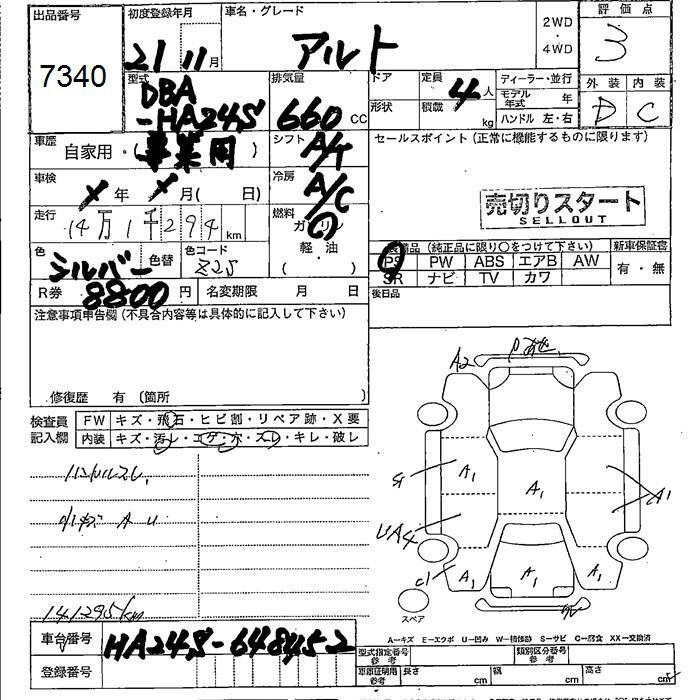 出品番号
7340
初度登録年月
21 11月
車名・グレード
アルト
2WD
・
4WD
評価点
3
外装 内装
D C
型式
DBA
-HA24S
排気量
660 CC
ドア
形状
定員
4人
積載
kg
ディーラー・並行
モデル年式 年
ハンドル 左・右
車歴
自家用・(事業用)
シフト
A/T
セールスポイント(正常に機能するものに限ります)
車検
年 月( 日)
冷房
A/C
売切りスタート
SELLOUT
走行
14万1千294km
燃料
ガソリン
軽・油
( )
色
シルバー
色替
色コード
Z2S
装備品(純正品に限り○をつけて下さい)
新車保証書
PS PW ABS エアB AW
SR ナビ TV カワ
有・無
R券
8800円
名変期限 月 日
後日品
注意事項申告欄(不具合内容等は具体的に記入して下さい)
修復歴 有 〔箇所 〕
検査員
記入欄
FW キズ・飛石・ヒビ割・リペア跡・X要
内装 キズ・汚レ・コゲ・穴・スレ・キレ・破レ
141295km
A2
A1
A1
A1
UA4
A1
A1
A1
スペア
A-キズ E-エクボ U-凹み W-補修跡 S-サビ C-腐食 XX-交換済
車台番号
HA24S-648452
型式指定番号
参考
類別区分番号
参考
登録番号
車庫証明用
参考
長さ cm
幅 cm
高さ cm